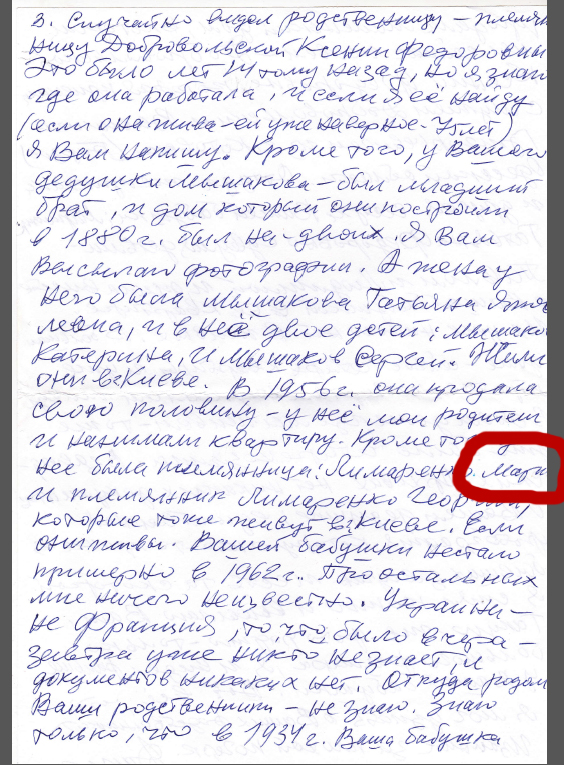 3. Случайно видел родственницу – племян
ницу Добровольской Ксении Федоровны
Это было лет 14 тому назад, но я знаю
где она работала, и если я её найду
(если она жива – ей уже наверное – 75 лет)
я Вам напишу. Кроме того, у Вашего
дедушки Мышакова – был младший
брат, и дом который они построили
в 1880 г. был на – двоих. Я Вам
высылаю фотографии. А жена у
него была Мышакова Татьяна
левна, и в неё двое детей: Мышако
Катерина, и Мышаков Сергей. Жили
они в г Киеве. В 1956 г. она продала
свою половину – у неё мои родители
и нанимали квартиру. Кроме то
неё была племянница: Лимаренко Мари
и племянник Лимаренко Георгий,
которые тоже живут в г Киеве. Если
они живы. Вашей бабушки не стало
примерно в 1962 г.. Про остальных
мне ничего неизвестно. Украина –
не Франция, то, что было вчера –
завтра уже никто не знает, и
документов никаких нет. Откуда родом
Ваши родственники – не знаю. Знаю
только, что в 1934 г. Ваша бабушка